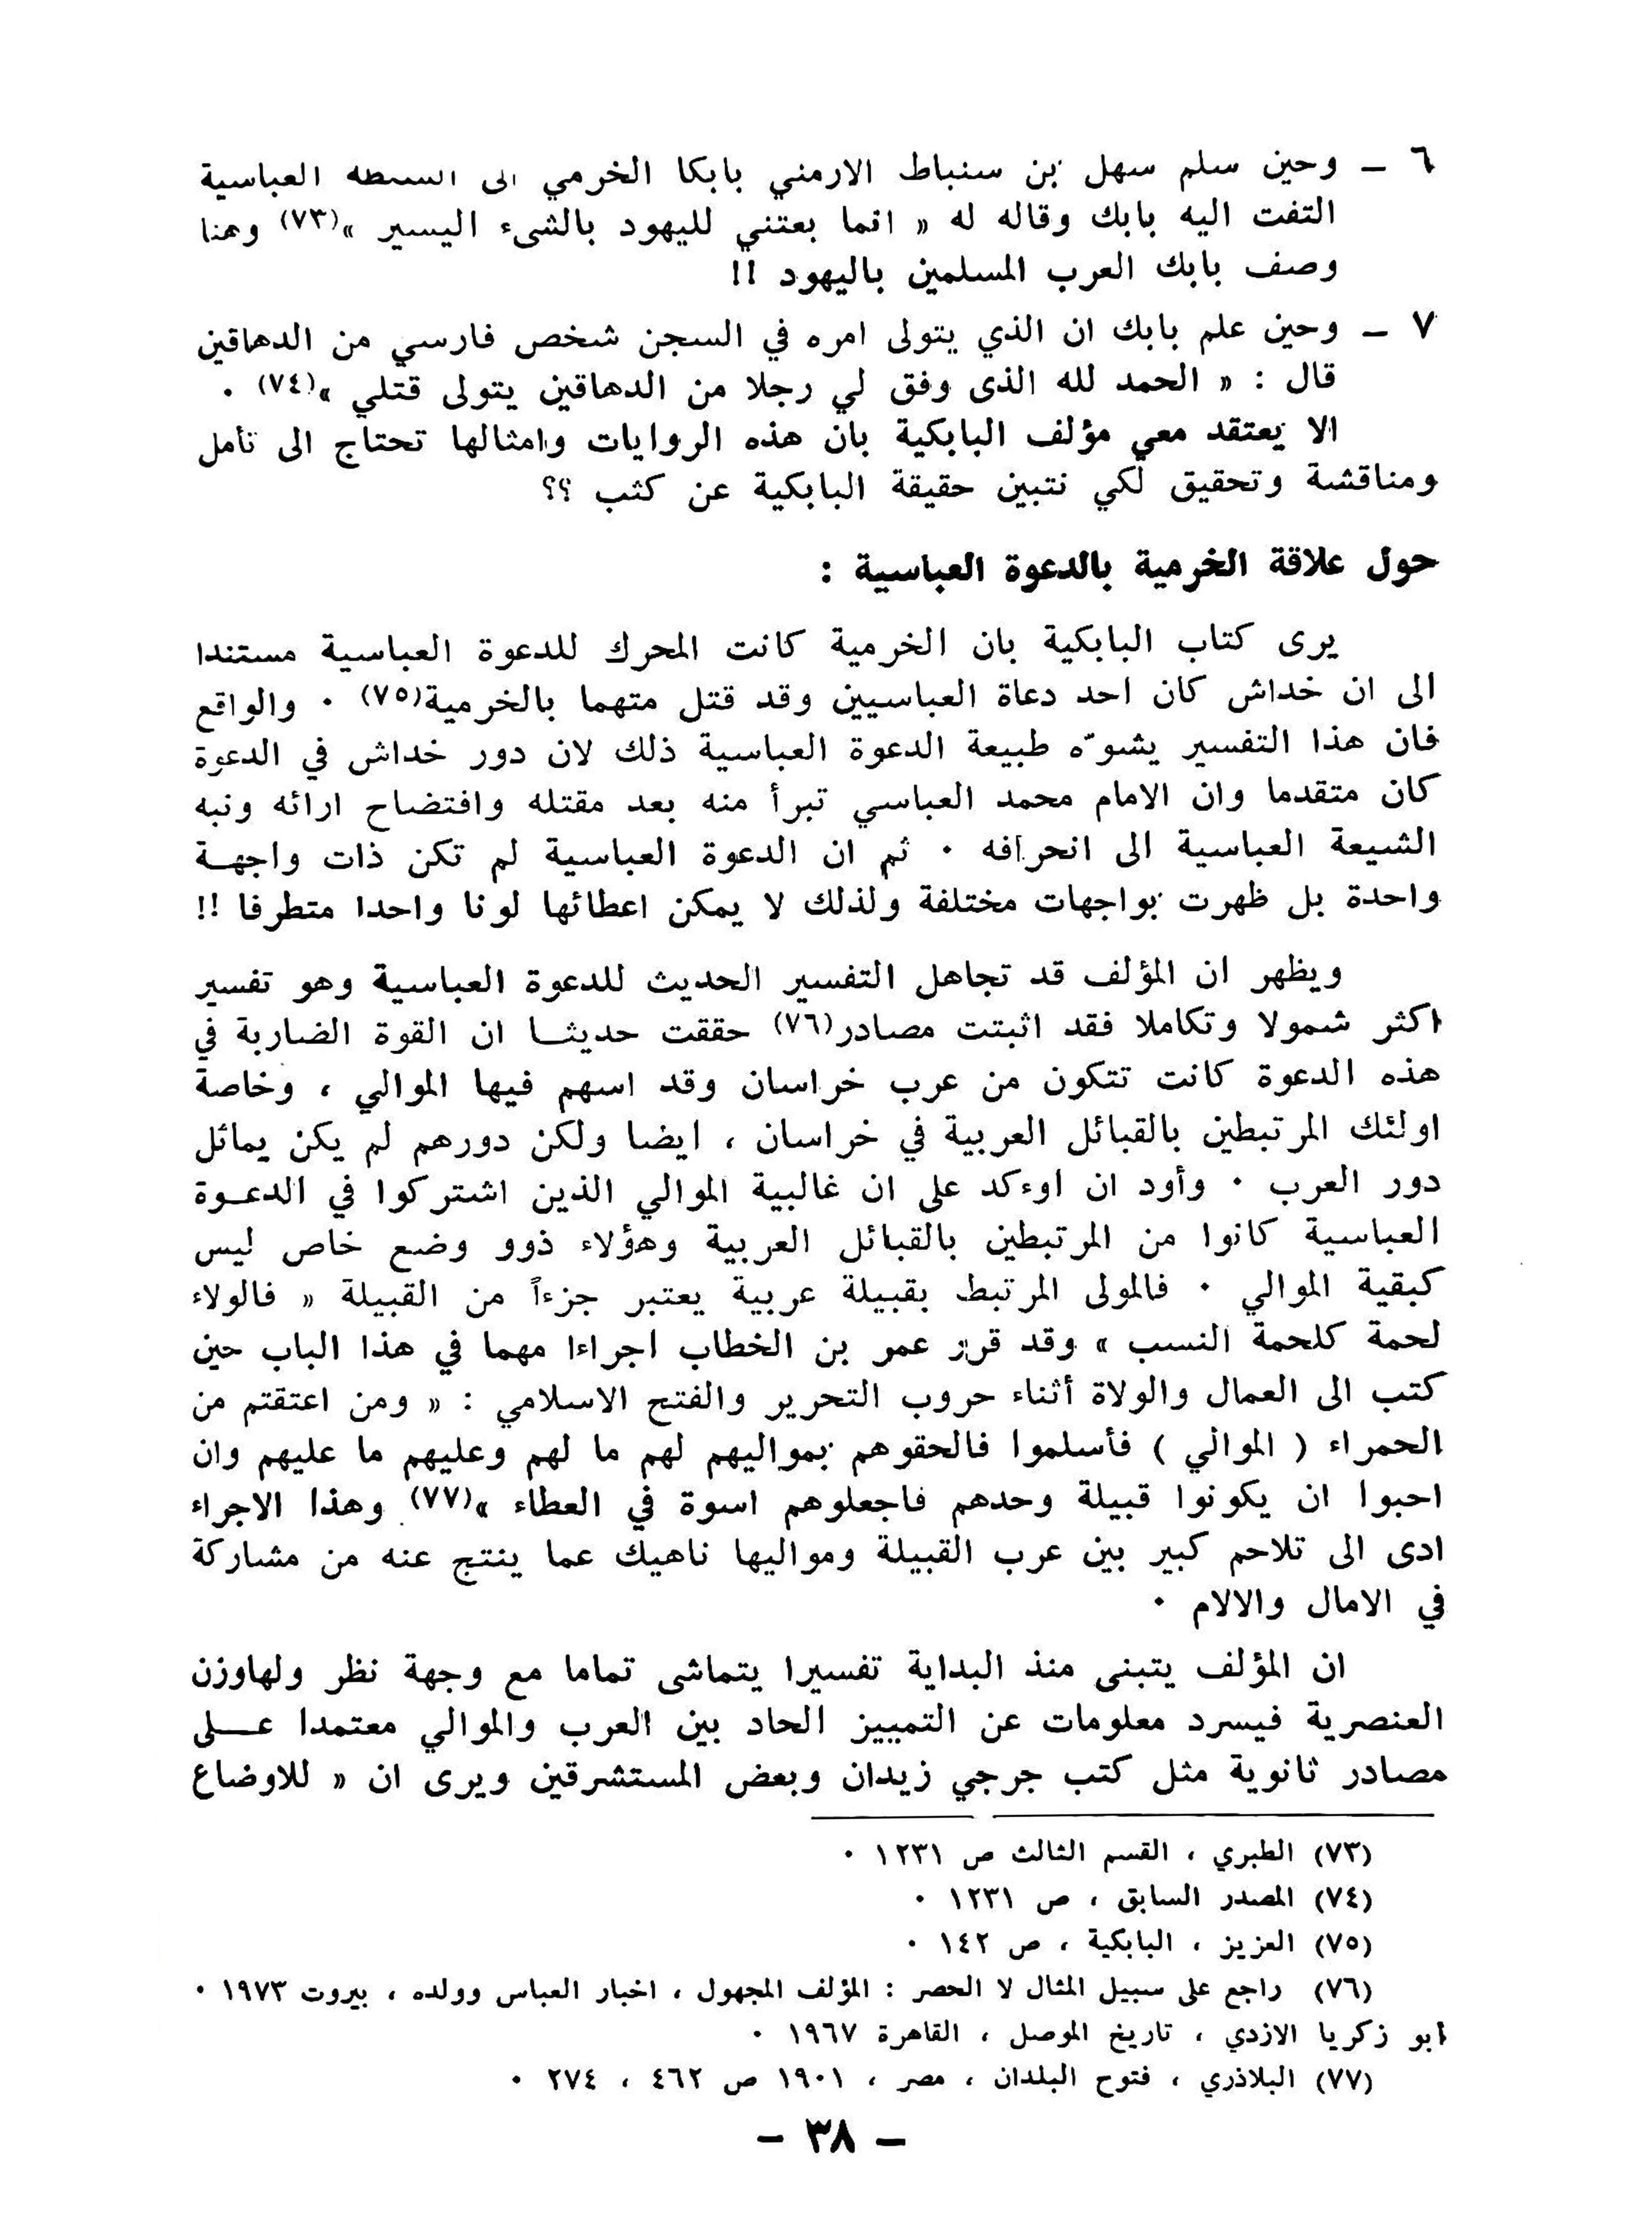 ٦ – وحين سلم سهل بن سنباط الارمني بابكا الخرمي الى السلطة العباسية
التفت اليه بابك وقاله له « انما بعتني لليهود بالشيء اليسير »(٧٣) وهنا
وصف بابك العرب المسلمين باليهود !!
٧ – وحين علم بابك ان الذي يتولى امره في السجن شخص فارسي من الدهاقين
قال : « الحمد لله الذى وفق لي رجلا من الدهاقين يتولى قتلي »(٧٤) ٠
الا يعتقد معي مؤلف البابكية بان هذه الروايات وامثالها تحتاج الى تأمل
ومناقشة وتحقيق لكي نتبين حقيقة البابكية عن كثب ؟؟
حول علاقة الخرمية بالدعوة العباسية :
يرى كتاب البابكية بان الخرمية كانت المحرك للدعوة العباسية مستندا
الى ان خداش كان احد دعاة العباسيين وقد قتل متهما بالخرمية(٧٥) ٠ والواقع
فان هذا التفسير يشوّه طبيعة الدعوة العباسية ذلك لان دور خداش في الدعوة
كان متقدما وان الامام محمد العباسي تبرأ منه بعد مقتله وافتضاح ارائه ونبه
الشيعة العباسية الى انحرافه ٠ ثم ان الدعوة العباسية لم تكن ذات واجهـة
واحدة بل ظهرت بواجهات مختلفة ولذلك لا يمكن اعطائها لونا واحدا متطرفا !!
ويظهر ان المؤلف قد تجاهل التفسير الحديث للدعوة العباسية وهو تفسير
اكثر شمولا وتكاملا فقد اثبتت مصادر(٧٦) حققت حديثـا ان القوة الضاربة في
هذه الدعوة كانت تتكون من عرب خراسان وقد اسهم فيها الموالي ، وخاصة
اولئك المرتبطين بالقبائل العربية في خراسان ، ايضا ولكن دورهم لم يكن يماثل
دور العرب ٠ وأود ان اوءكد على ان غالبية الموالي الذين اشتركوا في الدعـوة
العباسية كانوا من المرتبطين بالقبائل العربية وهؤلاء ذوو وضع خاص ليس
كبقية الموالي ٠ فالمولى المرتبط بقبيلة عربية يعتبر جزءاً من القبيلة « فالولاء
لحمة كلحمة النسب » وقد قرر عمر بن الخطاب اجراءا مهما في هذا الباب حين
كتب الى العمال والولاة أثناء حروب التحرير والفتح الاسلامي : « ومن اعتقتم من
الحمراء ( الموالي ) فأسلموا فالحقوهم بمواليهم لهم ما لهم وعليهم ما عليهم وان
احبوا ان يكونوا قبيلة وحدهم فاجعلوهم اسوة في العطاء »(٧٧) وهذا الاجراء
ادى الى تلاحم كبير بين عرب القبيلة ومواليها ناهيك عما ينتج عنه من مشاركة
في الامال والالام ٠
ان المؤلف يتبنى منذ البداية تفسيرا يتماشى تماما مع وجهة نظر ولهاوزن
العنصرية فيسرد معلومات عن التمييز الحاد بين العرب والموالي معتمدا عـــلى
مصادر ثانوية مثل كتب جرجي زيدان وبعض المستشرقين ويرى ان « للاوضاع
(٧٣) الطبري ، القسم الثالث ص ١٢٣١ ٠
(٧٤) المصدر السابق ، ص ١٢٣١ ٠
(٧٥) العزيز ، البابكية ، ص ١٤٢ ٠
(٧٦) راجع على سبيل المثال لا الحصر : المؤلف المجهول ، اخبار العباس وولده ، بيروت ١٩٧٣ ٠
ابو زكريا الازدي ، تاريخ الموصل ، القاهرة ١٩٦٧ ٠
(٧٧) البلاذري ، فتوح البلدان ، مصر ، ١٩٠١ ص ٤٦٢ ، ٢٧٤ ٠
– ٣٨ –